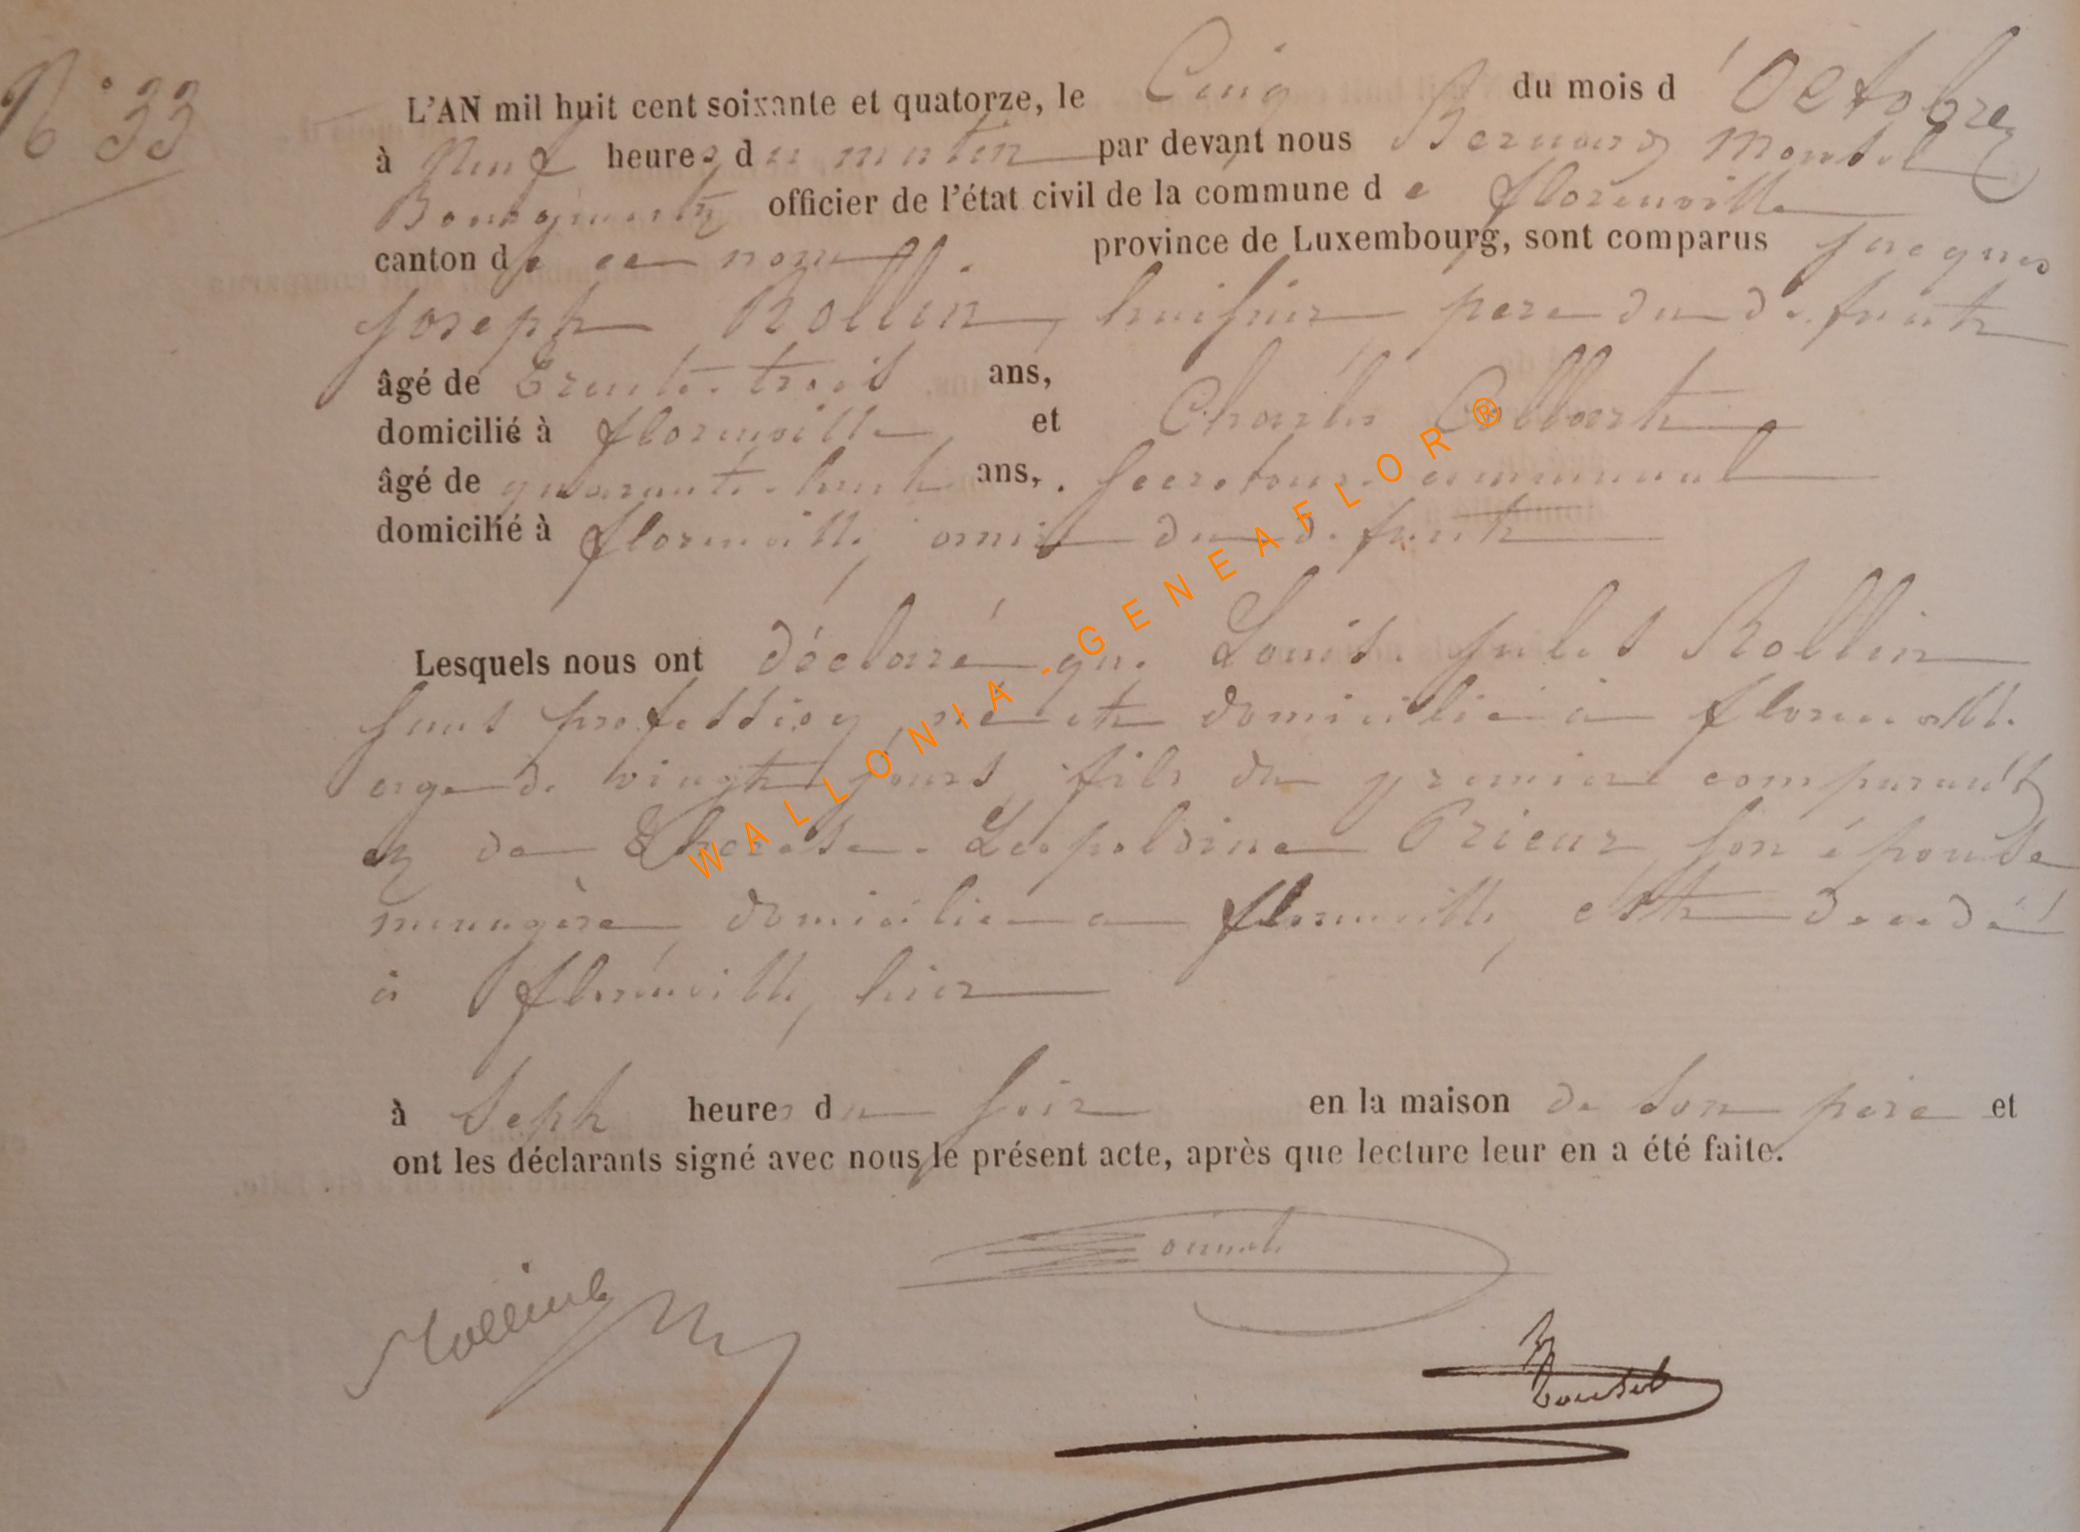 N° 33
L'AN mil huit cent soixante et quatorze, le Cinq du mois d'Octobre
à Neuf heures du matin par devant nous Bernard Mousel
officier de l'état civil de la commune de florenville
canton de ce nom. province de Luxembourg, sont comparus Jacques
Joseph Rollin, huissier pere du défunt
âgé de Trente-trois ans,
domicilié à florenville, et Charles Collart
âgé de quarante-huit ans, secretaire communal
domicilié à florenville, ami du défunt
Lesquels nous ont déclaré que Louis Jules Rollin
sans profession, né et domicilié à florenville
agé de vingt jours, fils du premier comparant
et de Therese Leopoldine Prieur, son épouse
menagère, domiciliée a florenville, est décédé
à florenville, hier
à Sept heures du soir en la maison de son père et
ont les déclarants signé avec nous le présent acte, après que lecture leur en a été faite.
Mousel
WALLONIA-GENEAFLOR®